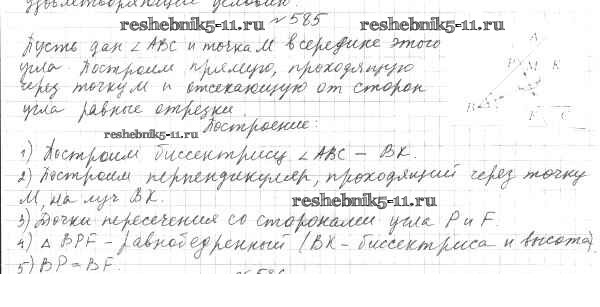 удовлетворяющие условию.
№585
reshebnik5-11.ru reshebnik5-11.ru
Пусть дан ∠ABC и точка M в середине этого
угла. Построим прямую, проходящую
через точку M и отсекающую от сторон
угла равные отрезки.
A
P M K
B
F C
reshebnik5-11.ru Построение:
1) Построим биссектрису ∠ABC – BK.
2) Построим перпендикуляр, проходящий через точку
M, на луч BK.
reshebnik5-11.ru
3) Точки пересечения со сторонами угла P и F.
4) △BPF – равнобедренный (BK – биссектриса и высота).
5) BP = BF.